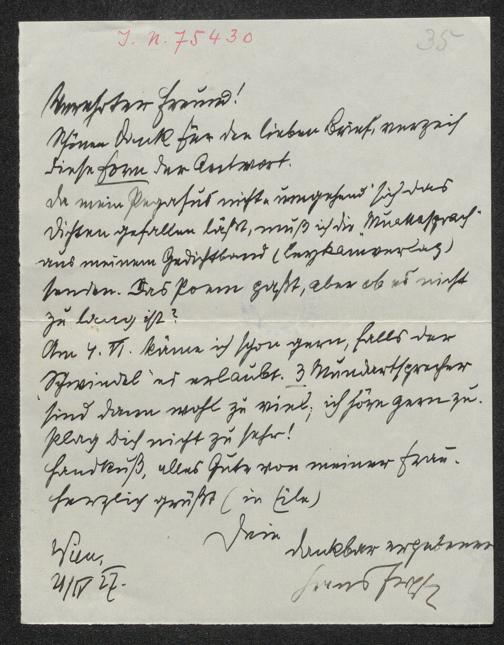 I.N. 75430
35
Verehrter Freund!
Schönen Dank für den lieben Brief, verzeih
diese Form der Antwort.
Da mein Pegasus nicht "umgehend" sich das
Dichten gefallen läßt, muß ich die "Muattasprach"
aus meinem Gedichtband (Leykamverlag)
senden. Das Poem paßt, aber ob es nicht
zu lang ist?
Am 4. VI. käme ich schon gern, falls der
"Schwindel" es erlaubt. 3 Mundartsprecher
sind dann wohl zu viel; ich höre gern zu.
Plag Dich nicht zu sehr!
Handkuß, alles Gute von meiner Frau.
Herzlich grüßt (in Eile)
Dein
dankbar ergebener
Wien,
Hans